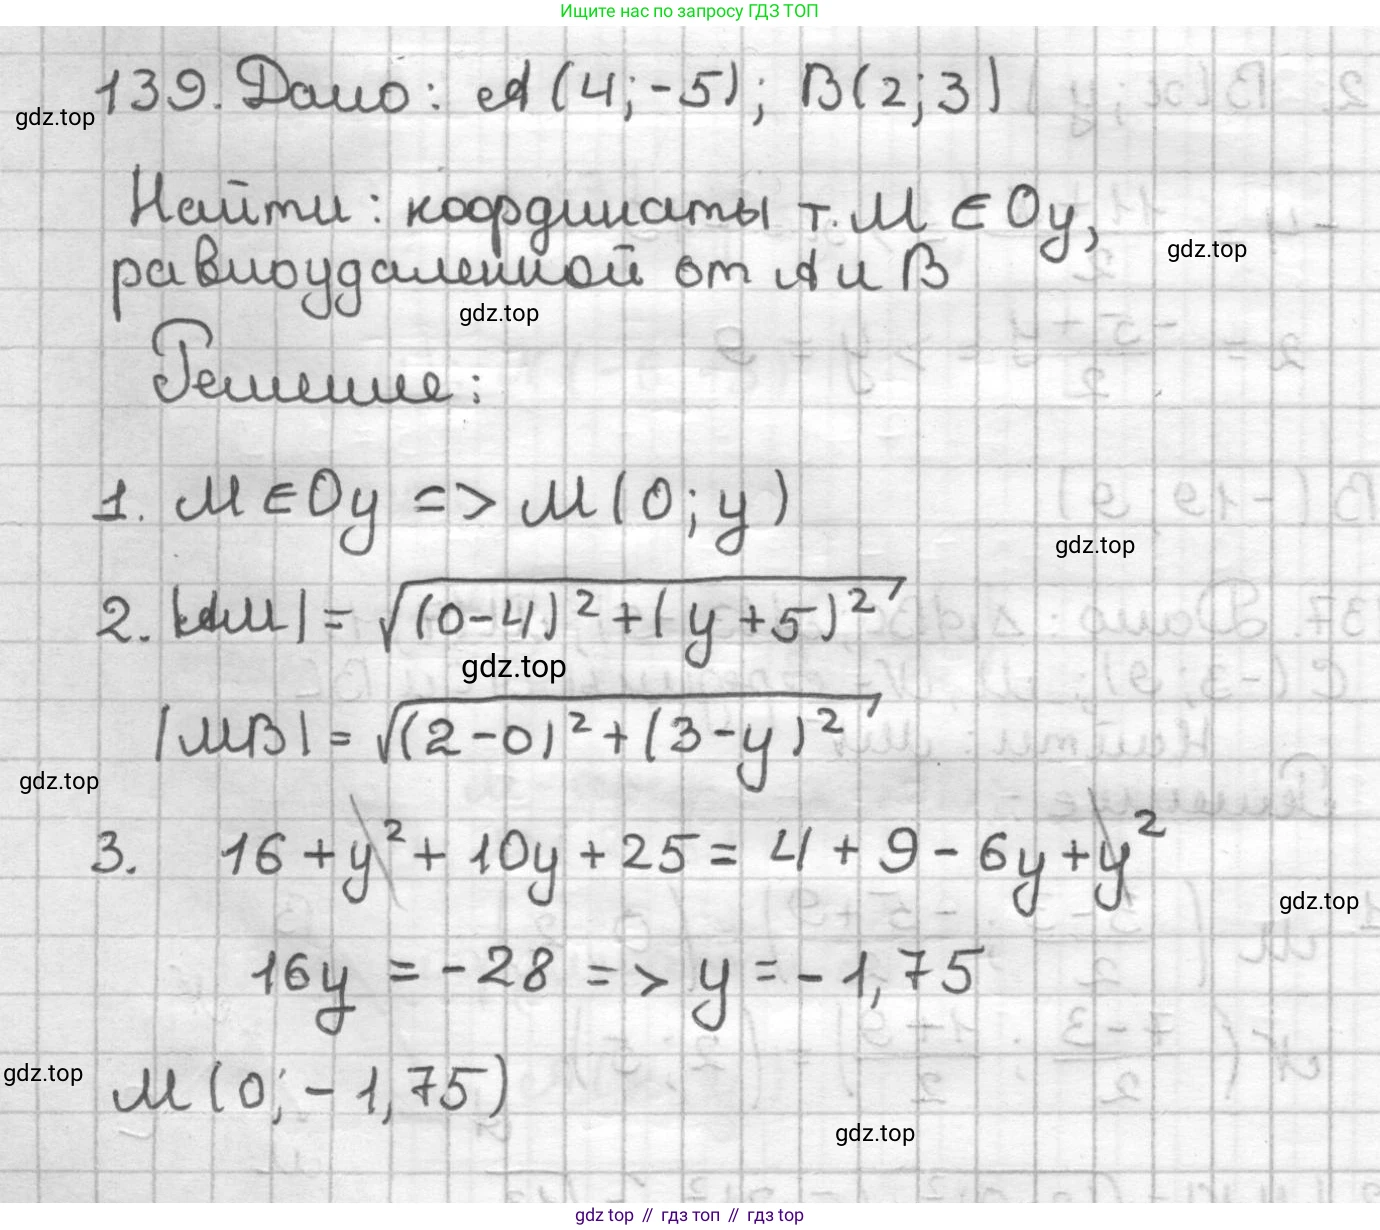 Ищите нас по запросу ГДЗ ТОП
139. Дано: A(4;-5); B(2;3)
gdz.top
Найти: координаты т. M ∈ Oy,
gdz.top
равноудаленной от A и B
gdz.top
Решение:
1. M ∈ Oy => M(0; y)
gdz.top
2. |AM| = √((0-4)² + (y+5)²)
gdz.top
|MB| = √((2-0)² + (3-y)²)
gdz.top
3. 16 + y² + 10y + 25 = 4 + 9 - 6y + y²
gdz.top
16y = -28 => y = -1,75
gdz.top
M(0; -1,75)
gdz.top
gdz top // гдз топ // гдз top